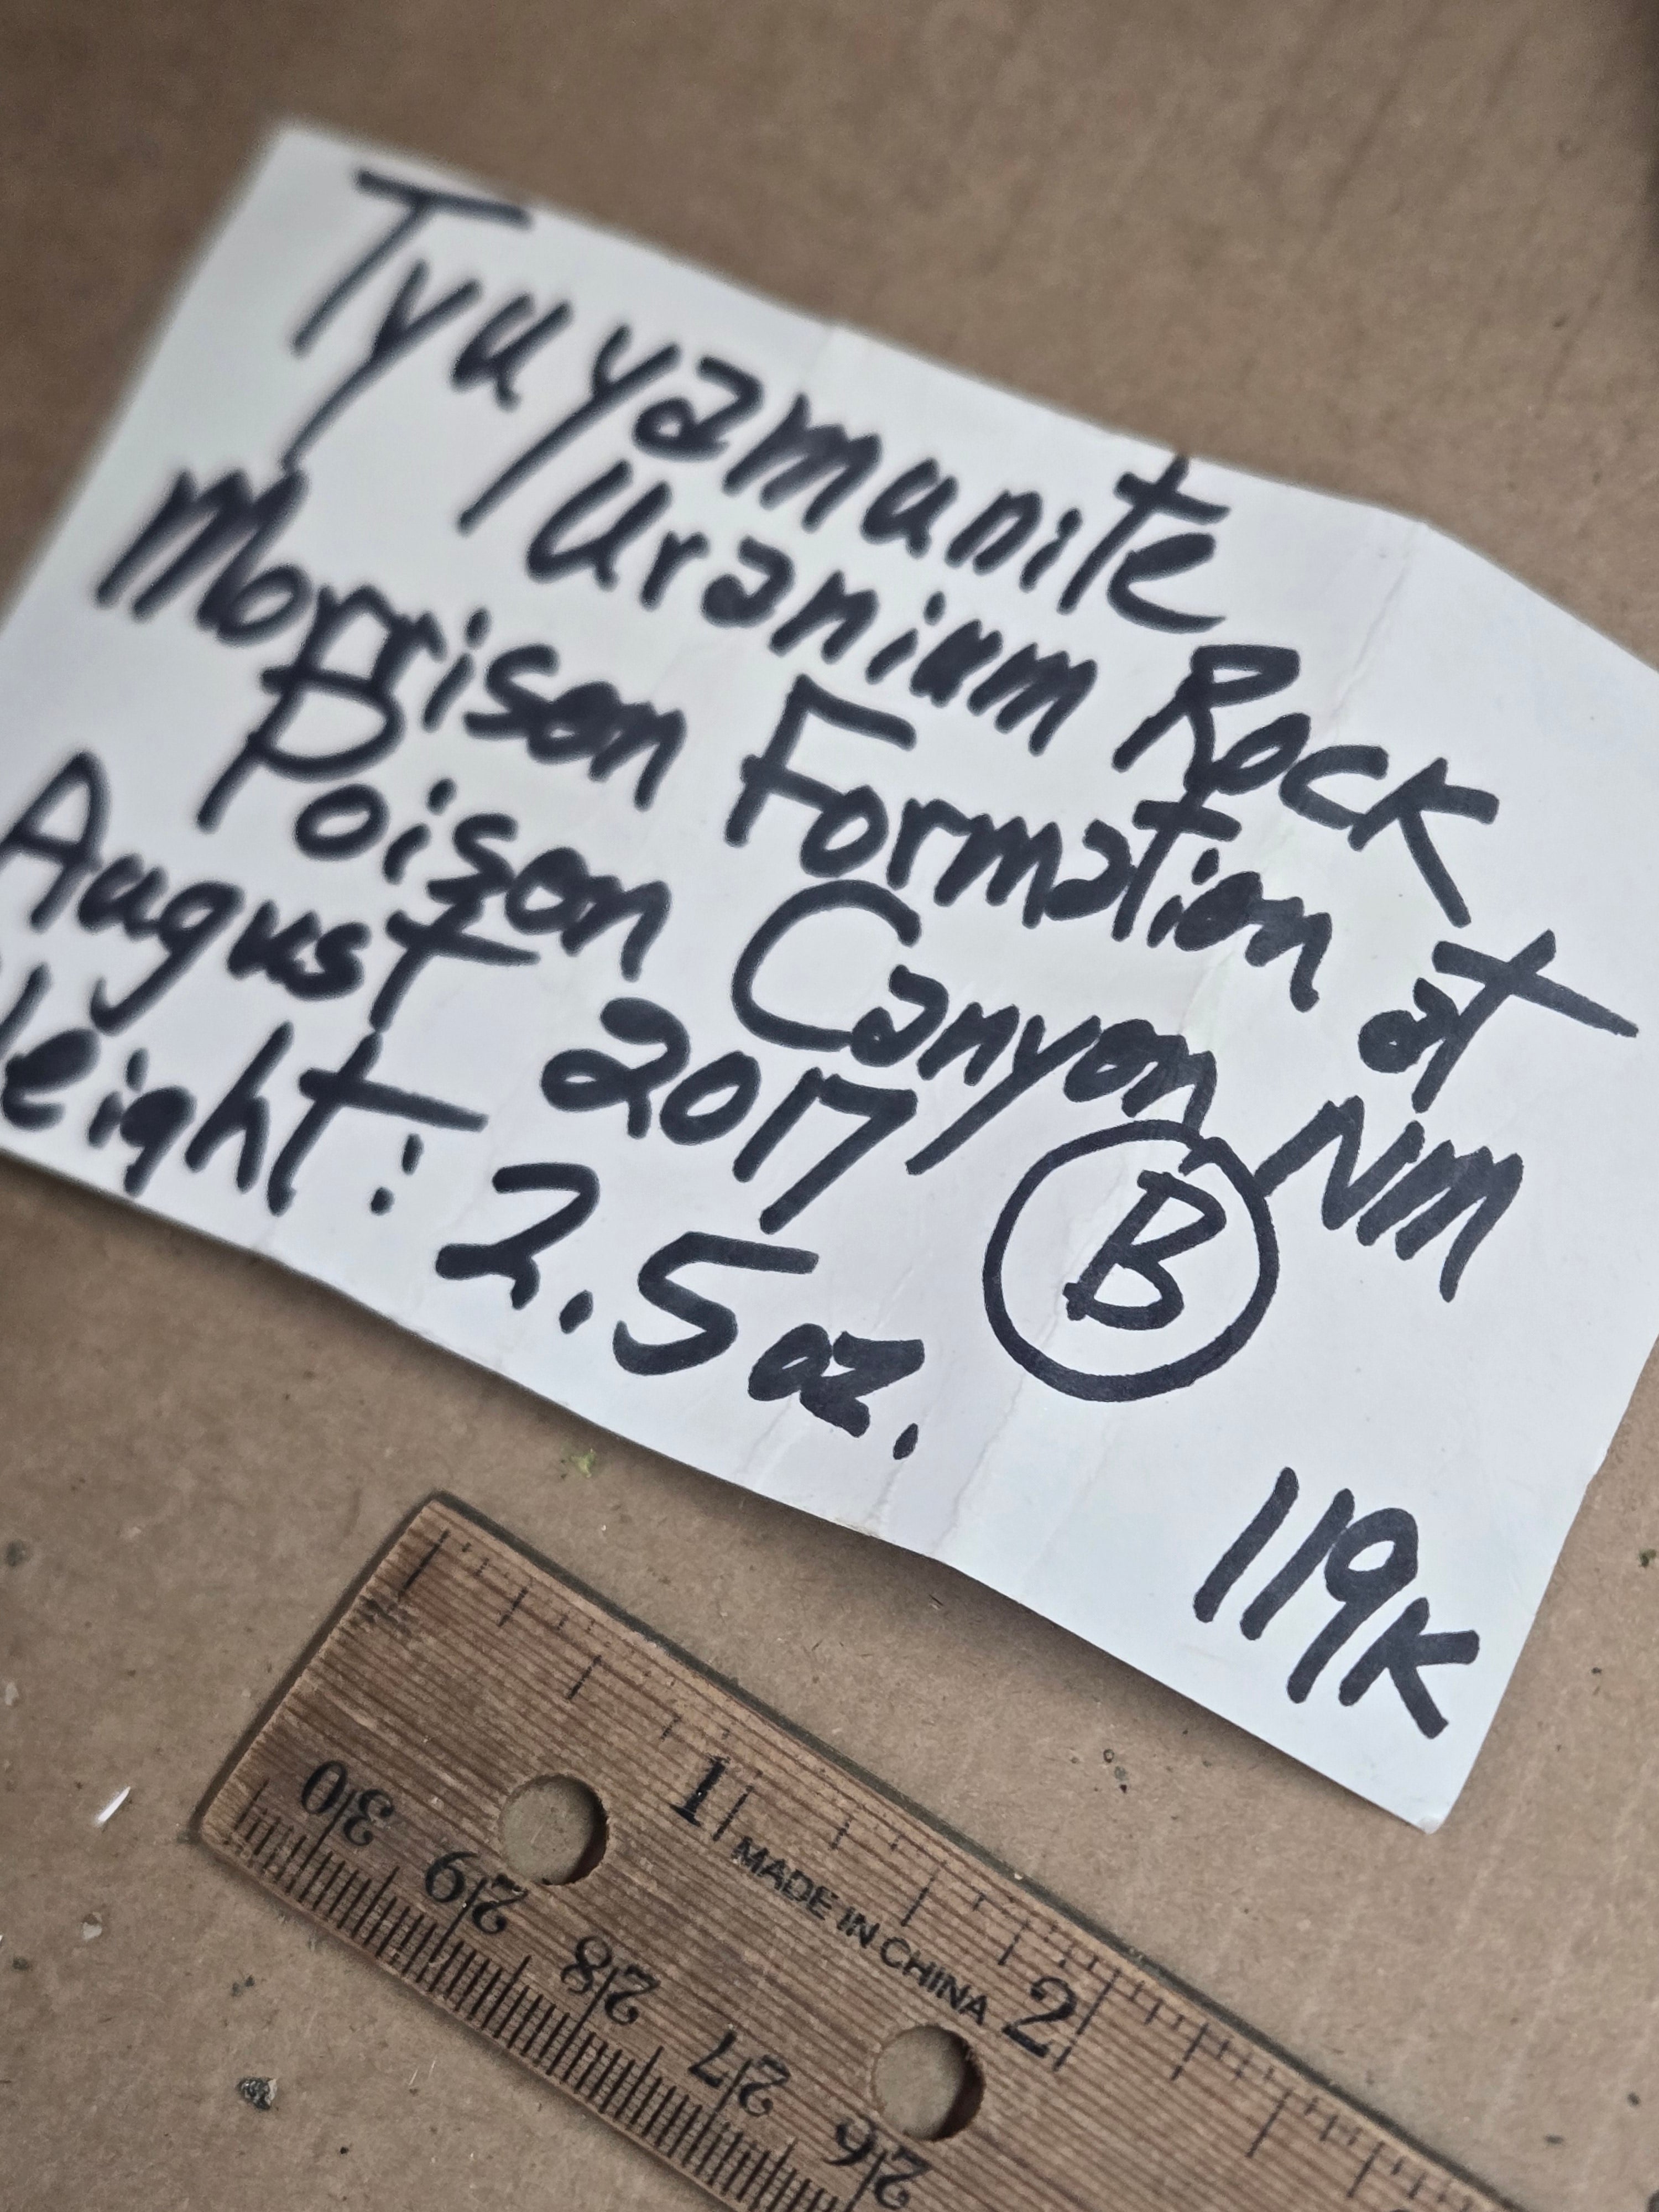 Tyuyamunite
Uranium Rock
Morrison Formation at
Poison Canyon NM
August 2017 B
Weight: 2.5 oz.
119K
1 2
MADE IN CHINA
30 29 28 27 26